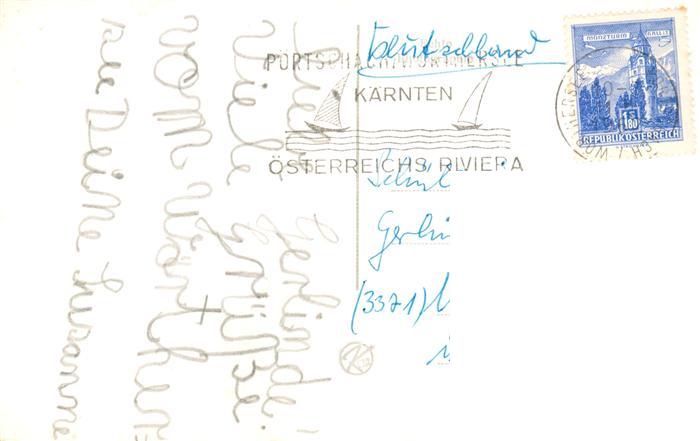 Liebe Gerlinde!
Viele Grüße
vom Wörther
see Deine Susanne
PÖRTSCHACH/WÖRTHERSEE
KÄRNTEN
ÖSTERREICHS RIVIERA
Deutschland
MÜNZTURM HALL i.T.
1.80
REPUBLIK ÖSTERREICH
Gerlin
(3371)